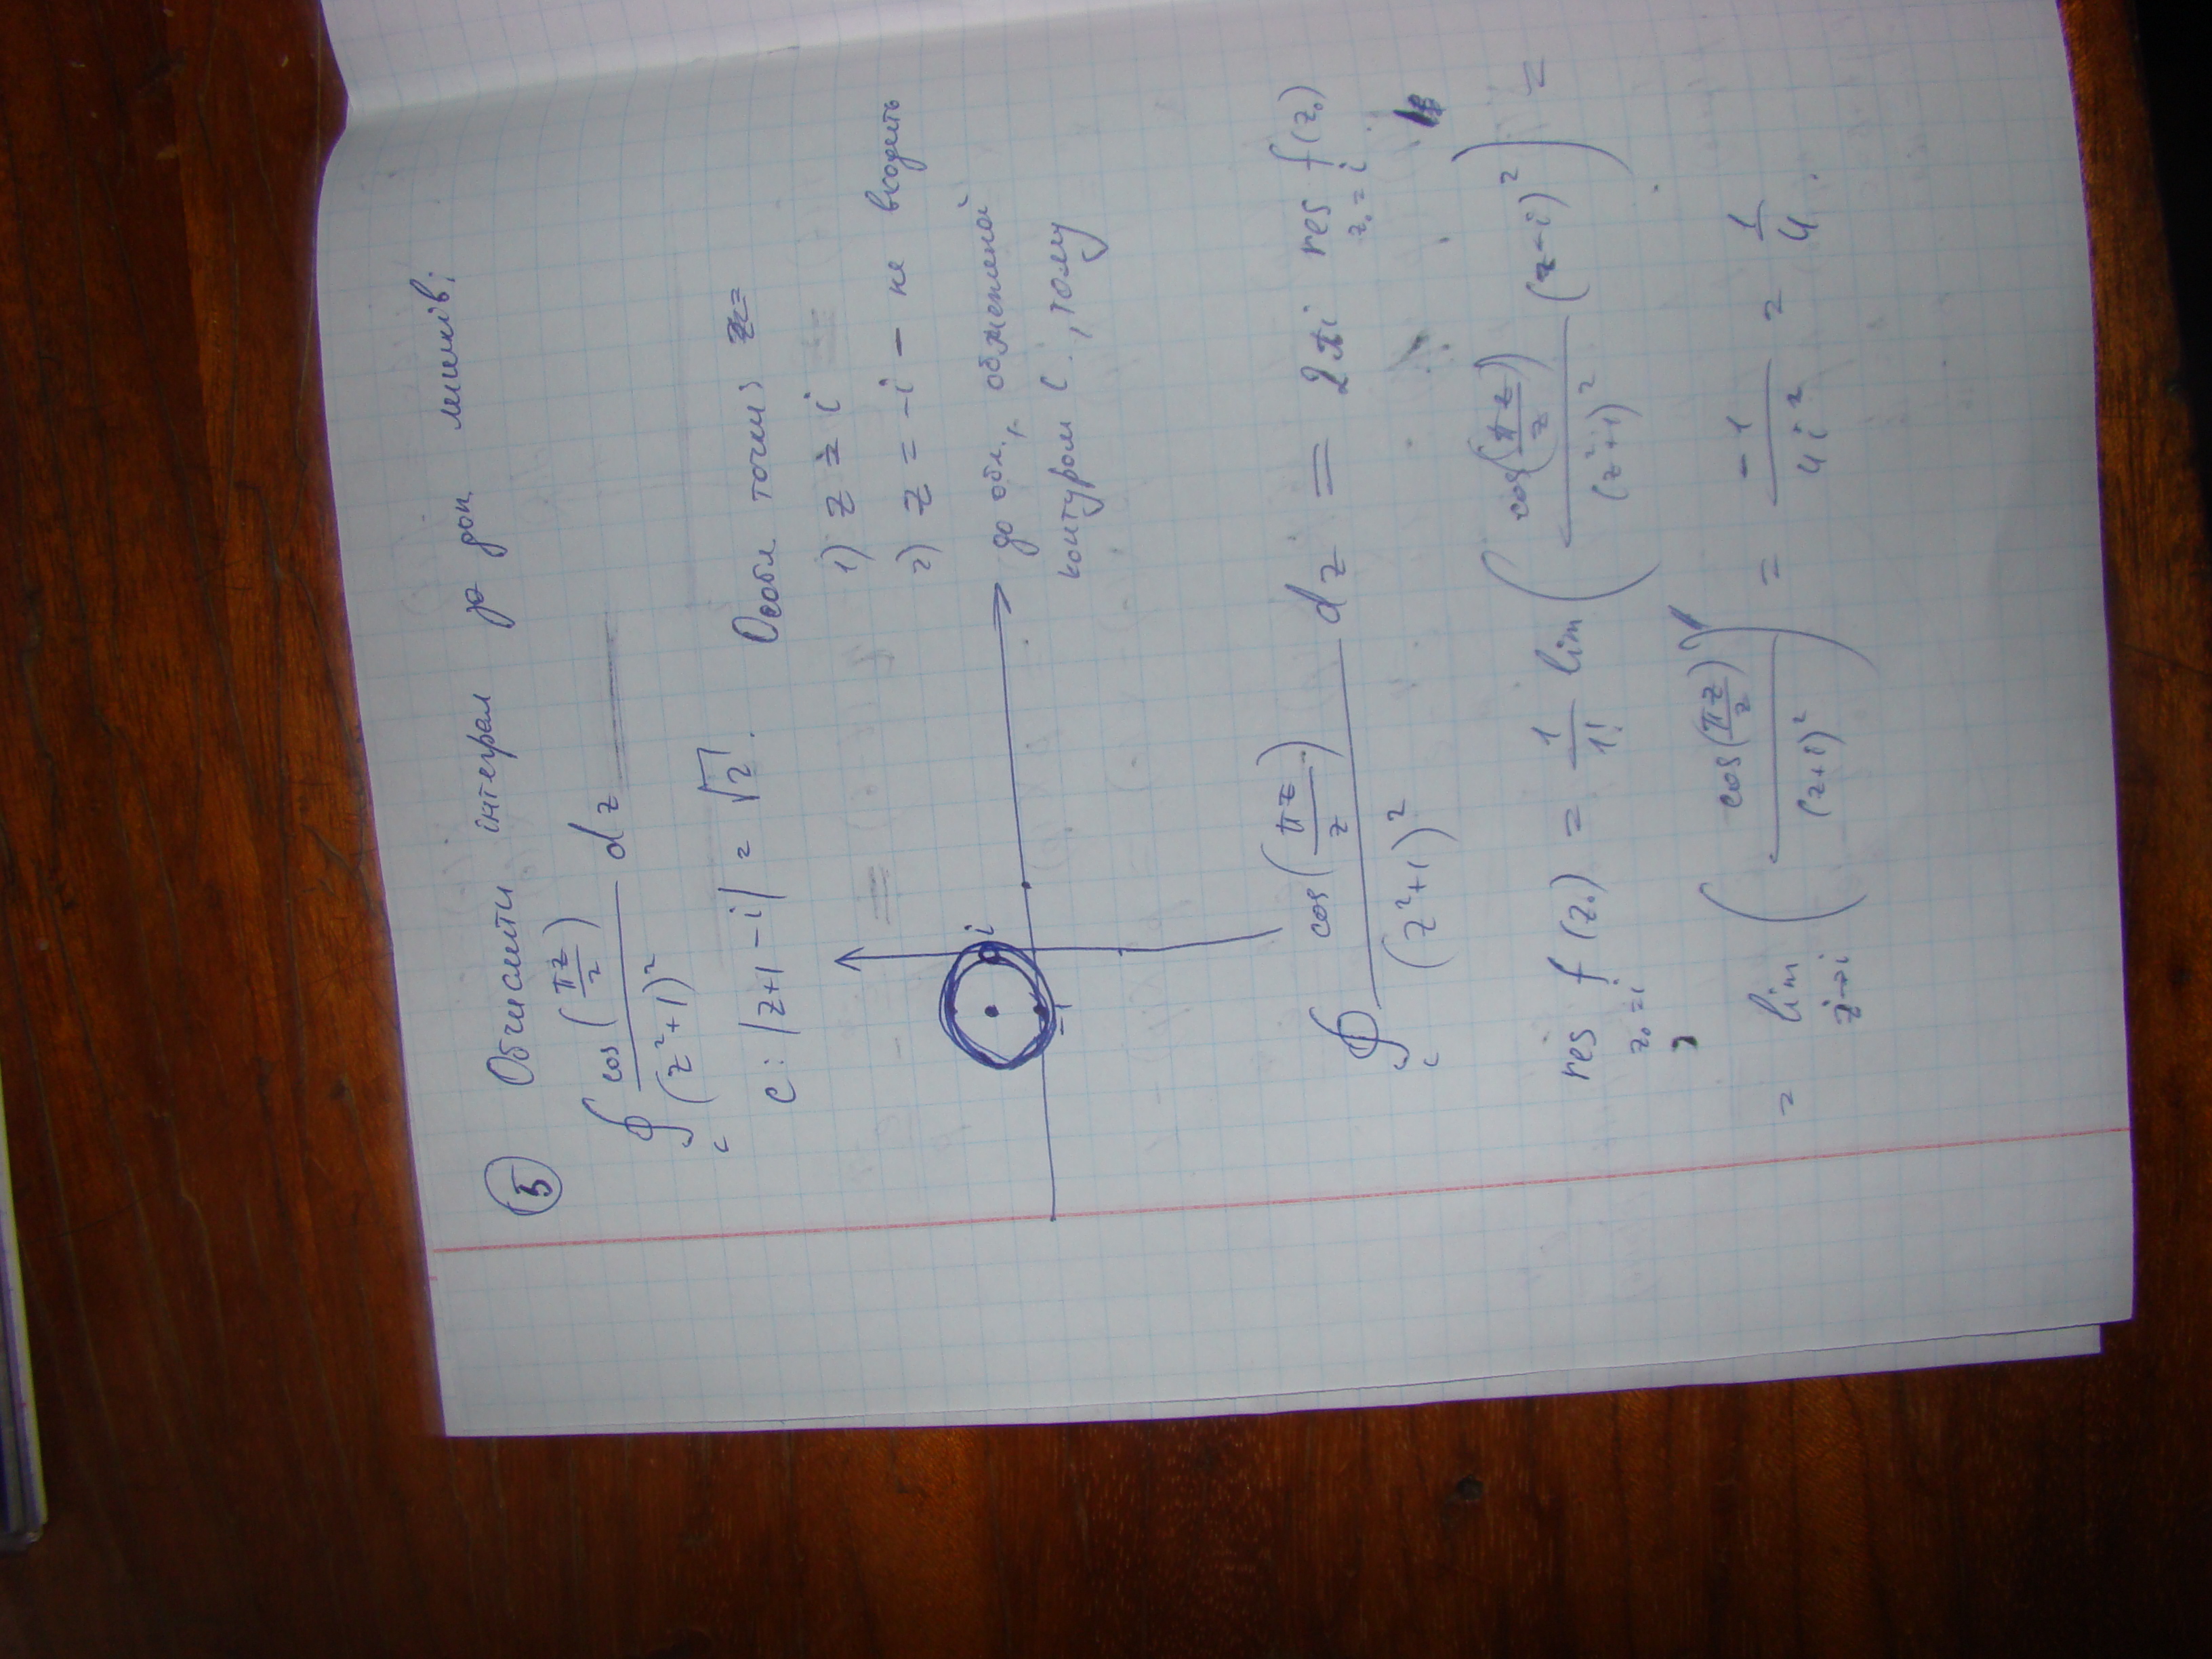 5 Обчислити інтеграл за доп лишків:
∮_c cos(πz/2) / (z²+1)² dz
c: |z+1-i| = √2. Особл точки:
1) z = i
2) z = -i - не входить
до обл., обмеженої
контуром C, тому
i
-1
∮_c cos(πz/2) / (z²+1)² dz = 2πi res_{z₀=i} f(z₀)
res_{z₀=i} f(z₀) = 1/1! lim ( cos(πz/2) / (z²+1)² (z-i)² ) =
= lim_{z→i} ( cos(πz/2) / (z+i)² )' = -1/4i² = 1/4.